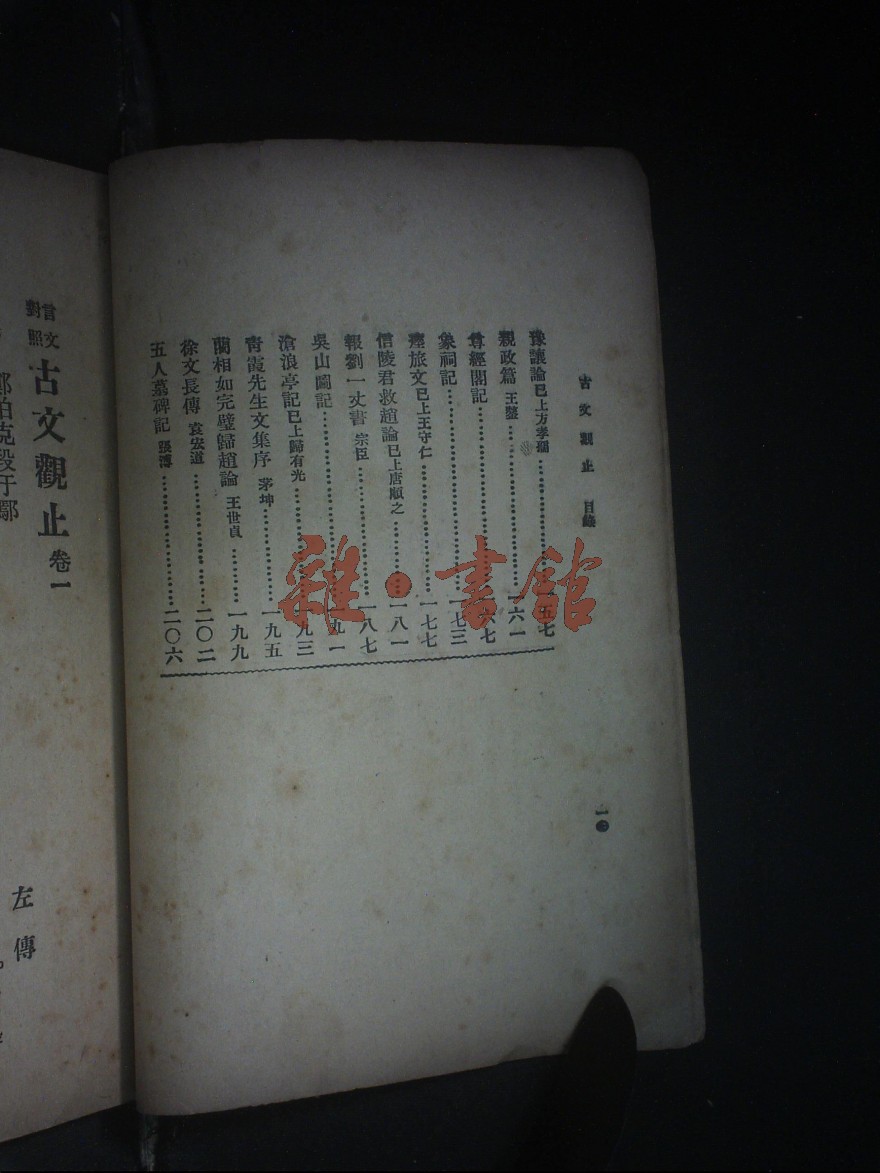 古文觀止 目錄
豫讓論已上方孝孺…………一五七
親政篇 王鏊…………一六一
尊經閣記…………一六七
象祠記…………一七三
瘞旅文已上王守仁…………一七七
信陵君救趙論已上唐順之…………一八一
報劉一丈書 宗臣…………一八七
吳山圖記…………一九一
滄浪亭記已上歸有光…………一九三
青霞先生文集序 茅坤…………一九五
藺相如完璧歸趙論 王世貞…………一九九
徐文長傳 袁宏道…………二〇二
五人墓碑記 張溥…………二〇六
一〇
言文對照 古文觀止 卷一
鄭伯克段于鄢
左傳
雜·書館